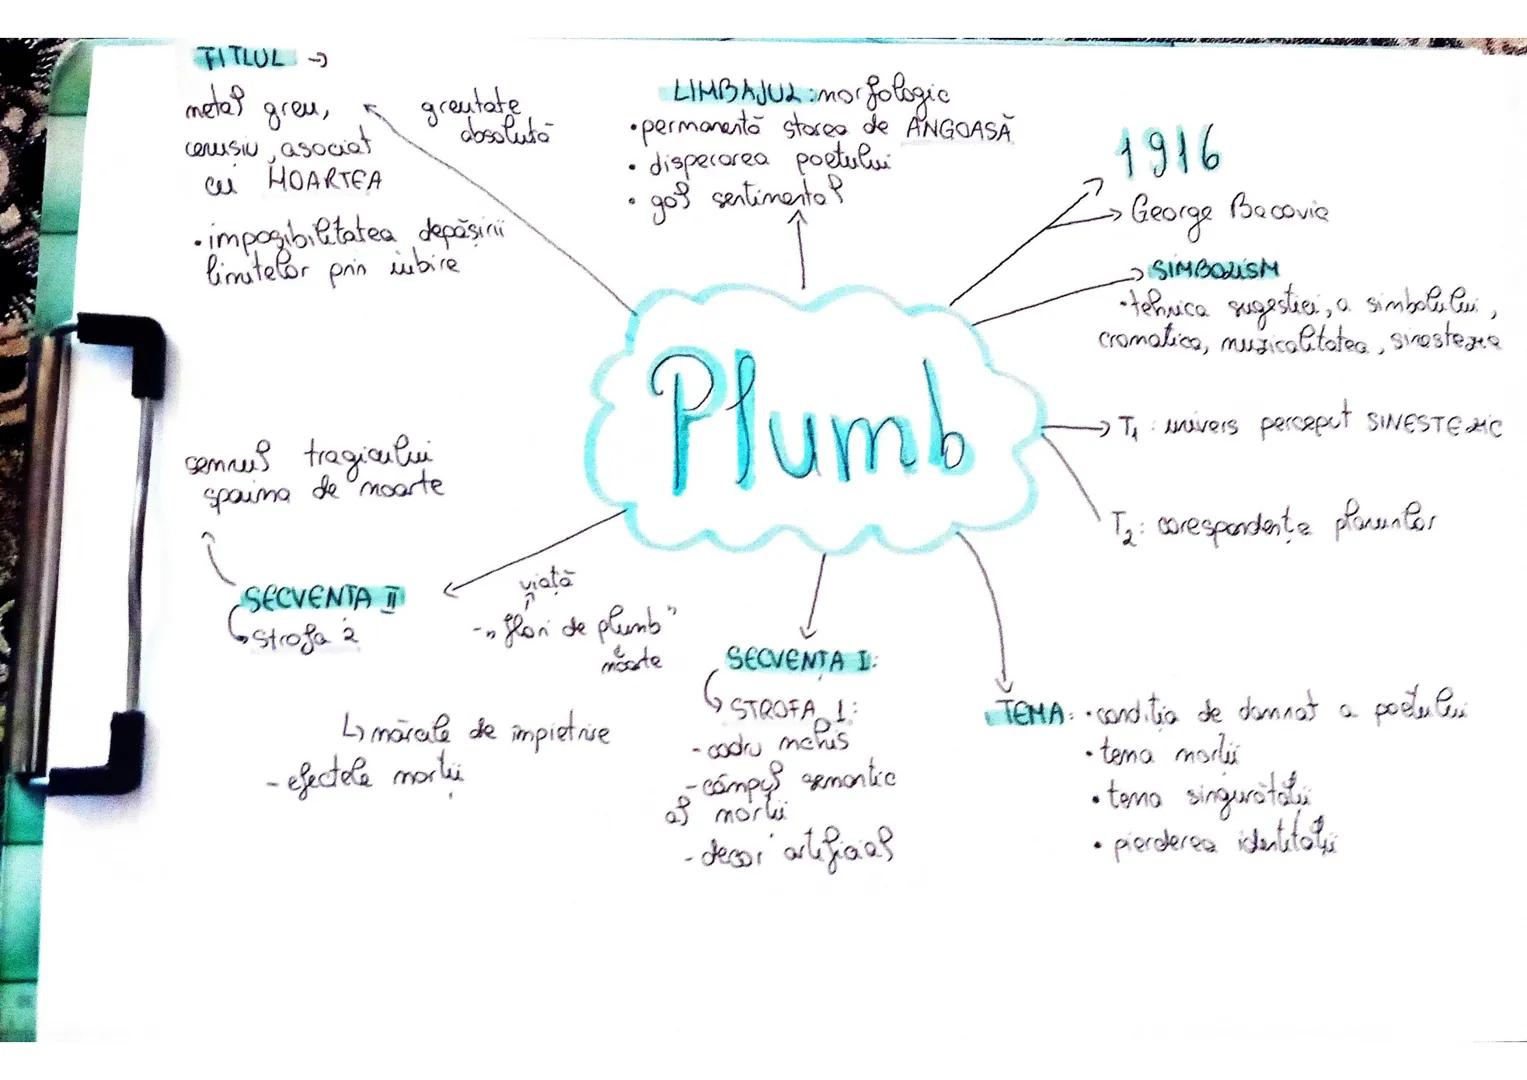 TITLUL →
metal greu,
cenusiu, asociat
cu MOARTEA
greutate
absolută
• imposibilitatea depășirii
limitelor prin iubire
LIMBAJUL: morfologic
• permanentă starea de ANGOASĂ
• disperarea poetului
• gol sentimental
1916
→ George Bacovia
→ SIMBOLISM
• tehnica sugestiei, a simbolului,
cromatica, muzicalitatea, sinestezia
Plumb
→ T1: univers perceput SINESTEZIC
T2: corespondența planurilor
semnul tragicului
spaima de moarte
SECVENTA II
↳ Strofa 2
viață
- „flori de plumb"
moarte
↳ mărcile de împietrire
- efectele morții
SECVENȚA I:
↳ STROFA 1:
- cadru închis
- câmpul semantic
al morții
- decor artificial
TEMA: • condiția de damnat a poetului
• tema morții
• tema singurătății
• pierderea identității